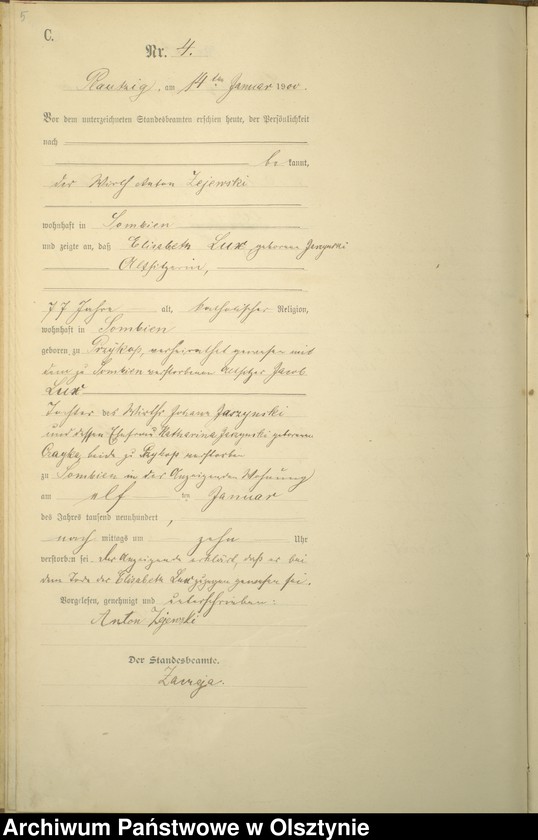 5
C.
Nr. 4.
am 14ten Januar 1900.
Vor dem unterzeichneten Standesbeamten erschien heute, der Persönlichkeit
nach
be kannt,
der Wirth Anton Zejewski
wohnhaft in Sombien
und zeigte an, daß Elisabeth Lux geborene
Altsitzerin,
77 Jahre alt, katholischer Religion,
wohnhaft in Sombien
geboren zu Przykop, verheirathet gewesen mit
dem zu Sombien verstorbenen Altsitzer Jacob
Lux
Tochter des Wirths Jarzynski
und dessen Ehefrau Katharina geborene
beide zu verstorben
zu Sombien in des Anzeigenden Wohnung
am elf ten Januar
des Jahres tausend neunhundert ,
nach mittags um zehn Uhr
verstorben sei. Der Anzeigende erklärt, daß er bei
dem Tode der Elisabeth Lux zugegen gewesen sei.
Vorgelesen, genehmigt und unterschrieben:
Anton Zejewski
Der Standesbeamte.
Archiwum Państwowe w Olsztynie